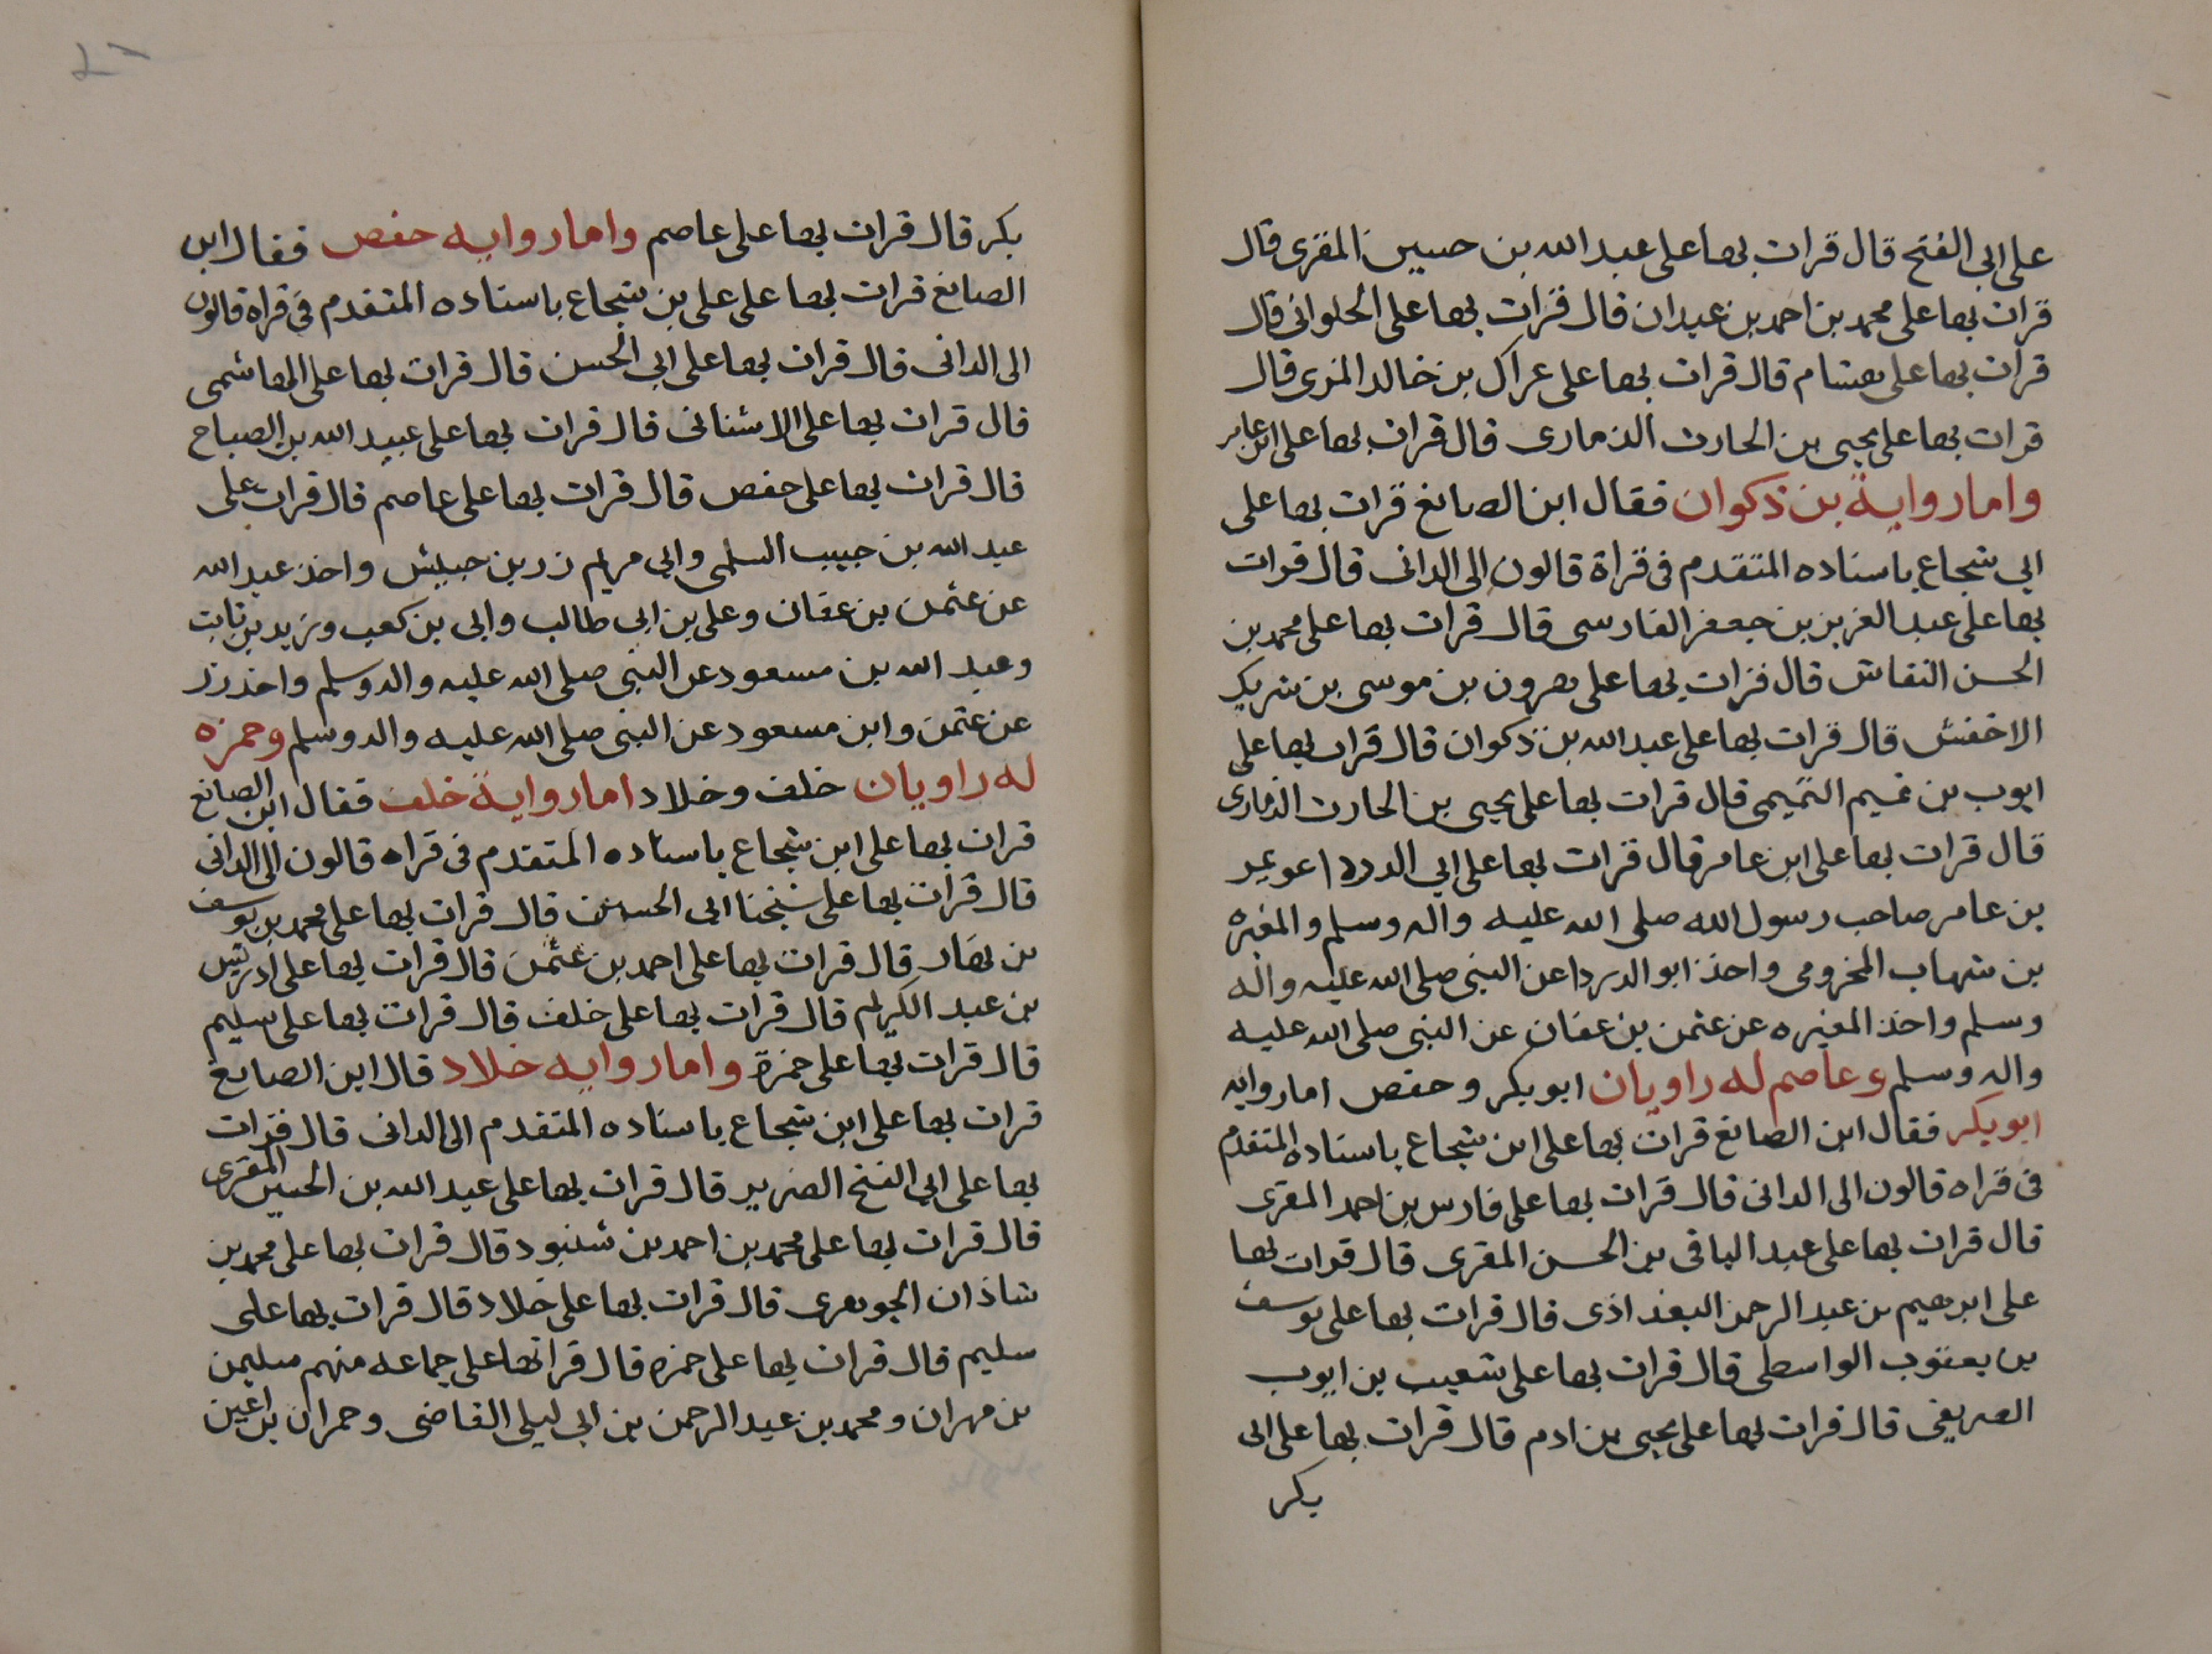 على ابى الفتح قال قرات بها على عبد الله بن حسين المقرى قال
قرات بها على محمد بن احمد بن عبدان قال قرات بها على الحلوانى قال
قرات بها على هشام قال قرات بها على عراك بن خالد المزى قال
قرات بها على يحيى بن الحارث الذمارى قال قرات بها على ابن عامر
واما رواية بن ذكوان فقال ابن الصايغ قرات بها على
ابي شجاع باسناده المتقدم فى قراة قالون الى الدانى قال قرات
بها على عبد العزيز بن جعفر الفارسى قال قرات بها على محمد بن
الحسن النقاش قال قرات بها على هرون بن موسى بن شريك
الاخفش قال قرات بها على عبد الله بن ذكوان قال قرات بها على
ايوب بن تميم التميمى قال قرات بها على يحيى بن الحارث الذمارى
قال قرات بها على ابن عامر قال قرات بها على ابي الدردا عويمر
بن عامر صاحب رسول الله صلى الله عليه واله وسلم والمغيره
بن شهاب المخزومى واخذ ابو الدردا عن النبى صلى الله عليه واله
وسلم واخذ المغيره عن عثمن بن عفان عن النبى صلى الله عليه
واله وسلم وعاصم له راويان ابو بكر وحفص اما روايه
ابو بكر فقال ابن الصايغ قرات بها على ابن شجاع باسناده المتقدم
فى قراه قالون الى الدانى قال قرات بها على فارس بن احمد المقرى
قال قرات بها على عبد الباقى بن الحسن المقرى قال قرات بها
على ابرهيم بن عبد الرحمن البغدادى قال قرات بها على يوسف
بن يعقوب الواسطى قال قرات بها على شعيب بن ايوب
الصريفى قال قرات بها على يحيى بن ادم قال قرات بها على ابى
بكر
بكر قال قرات بها على عاصم واما روايه حفص فقال ابن
الصايغ قرات بها على على بن شجاع باسناده المتقدم فى قراه قالون
الى الدانى قال قرات بها على ابي الحسن قال قرات بها على الهاشمى
قال قرات بها على الاشنانى قال قرات بها على عبيد الله بن الصباح
قال قرات بها على حفص قال قرات بها على عاصم قال قرات على
عبد الله بن حبيب السلمى وابي مريم زر بن حبيش واخذ عبد الله
عن عثمن بن عفان وعلى بن ابى طالب وابى بن كعب وزيد بن ثابت
وعبد الله بن مسعود عن النبى صلى الله عليه واله وسلم واخذ زر
عن عثمن وابن مسعود عن النبى صلى الله عليه واله وسلم وحمزه
له راويان خلف وخلاد اما رواية خلف فقال ابن الصايغ
قرات بها على ابن شجاع باسناده المتقدم فى قراه قالون الى الدانى
قال قرات بها على شيخنا ابى الحسن قال قرات بها على محمد بن يوسف
بن نهار قال قرات بها على احمد بن عثمن قال قرات بها على ادريس
بن عبد الكريم قال قرات بها على خلف قال قرات بها على سليم
قال قرات بها على حمزة واما روايه خلاد قال ابن الصايغ
قرات بها على ابن شجاع باسناده المتقدم الى الدانى قال قرات
بها على ابي الفتح الضرير قال قرات بها على عبد الله بن الحسين المقرى
قال قرات بها على محمد بن احمد بن شنبود قال قرات بها على محمد بن
شاذان الجوهرى قال قرات بها على خلاد قال قرات بها على
سليم قال قرات بها على حمزه قال قراتها على جماعه منهم سليمن
بن مهران ومحمد بن عبد الرحمن بن ابى ليلى القاضى وحمران بن اعين